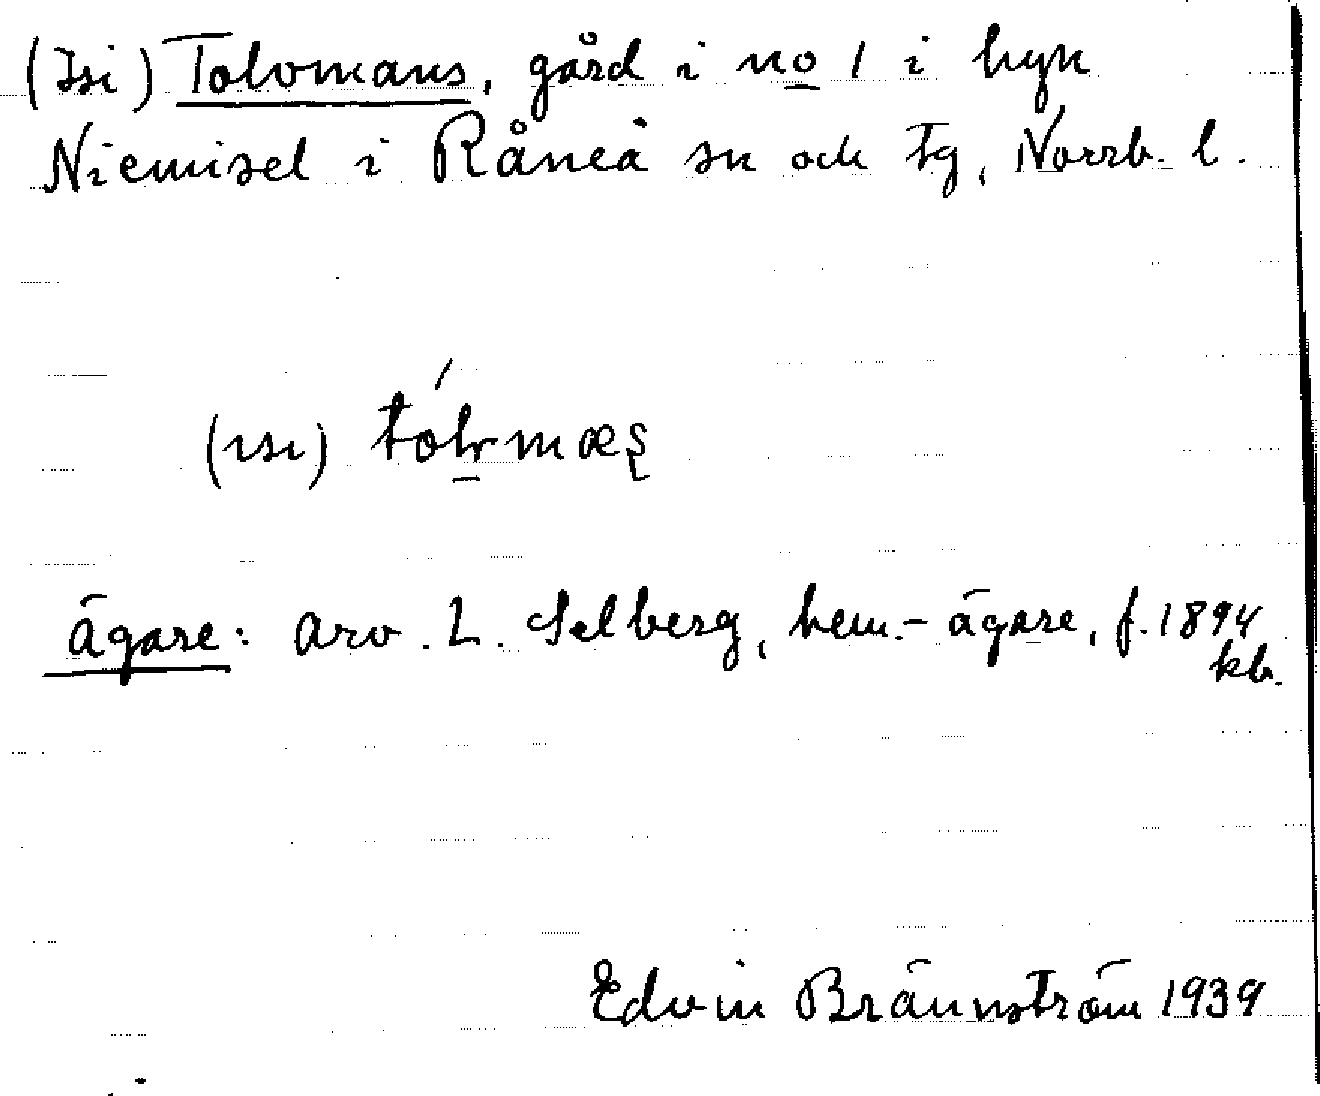 (Isi) Tolvmans, gård i no 1 i byn
Niemisel i Råneå sn och tg, Norrb. l.
(isi)
ägare: Arv. L. Selberg, hem.-ägare, f. 1894
kb.
Edvin Brännström 1939